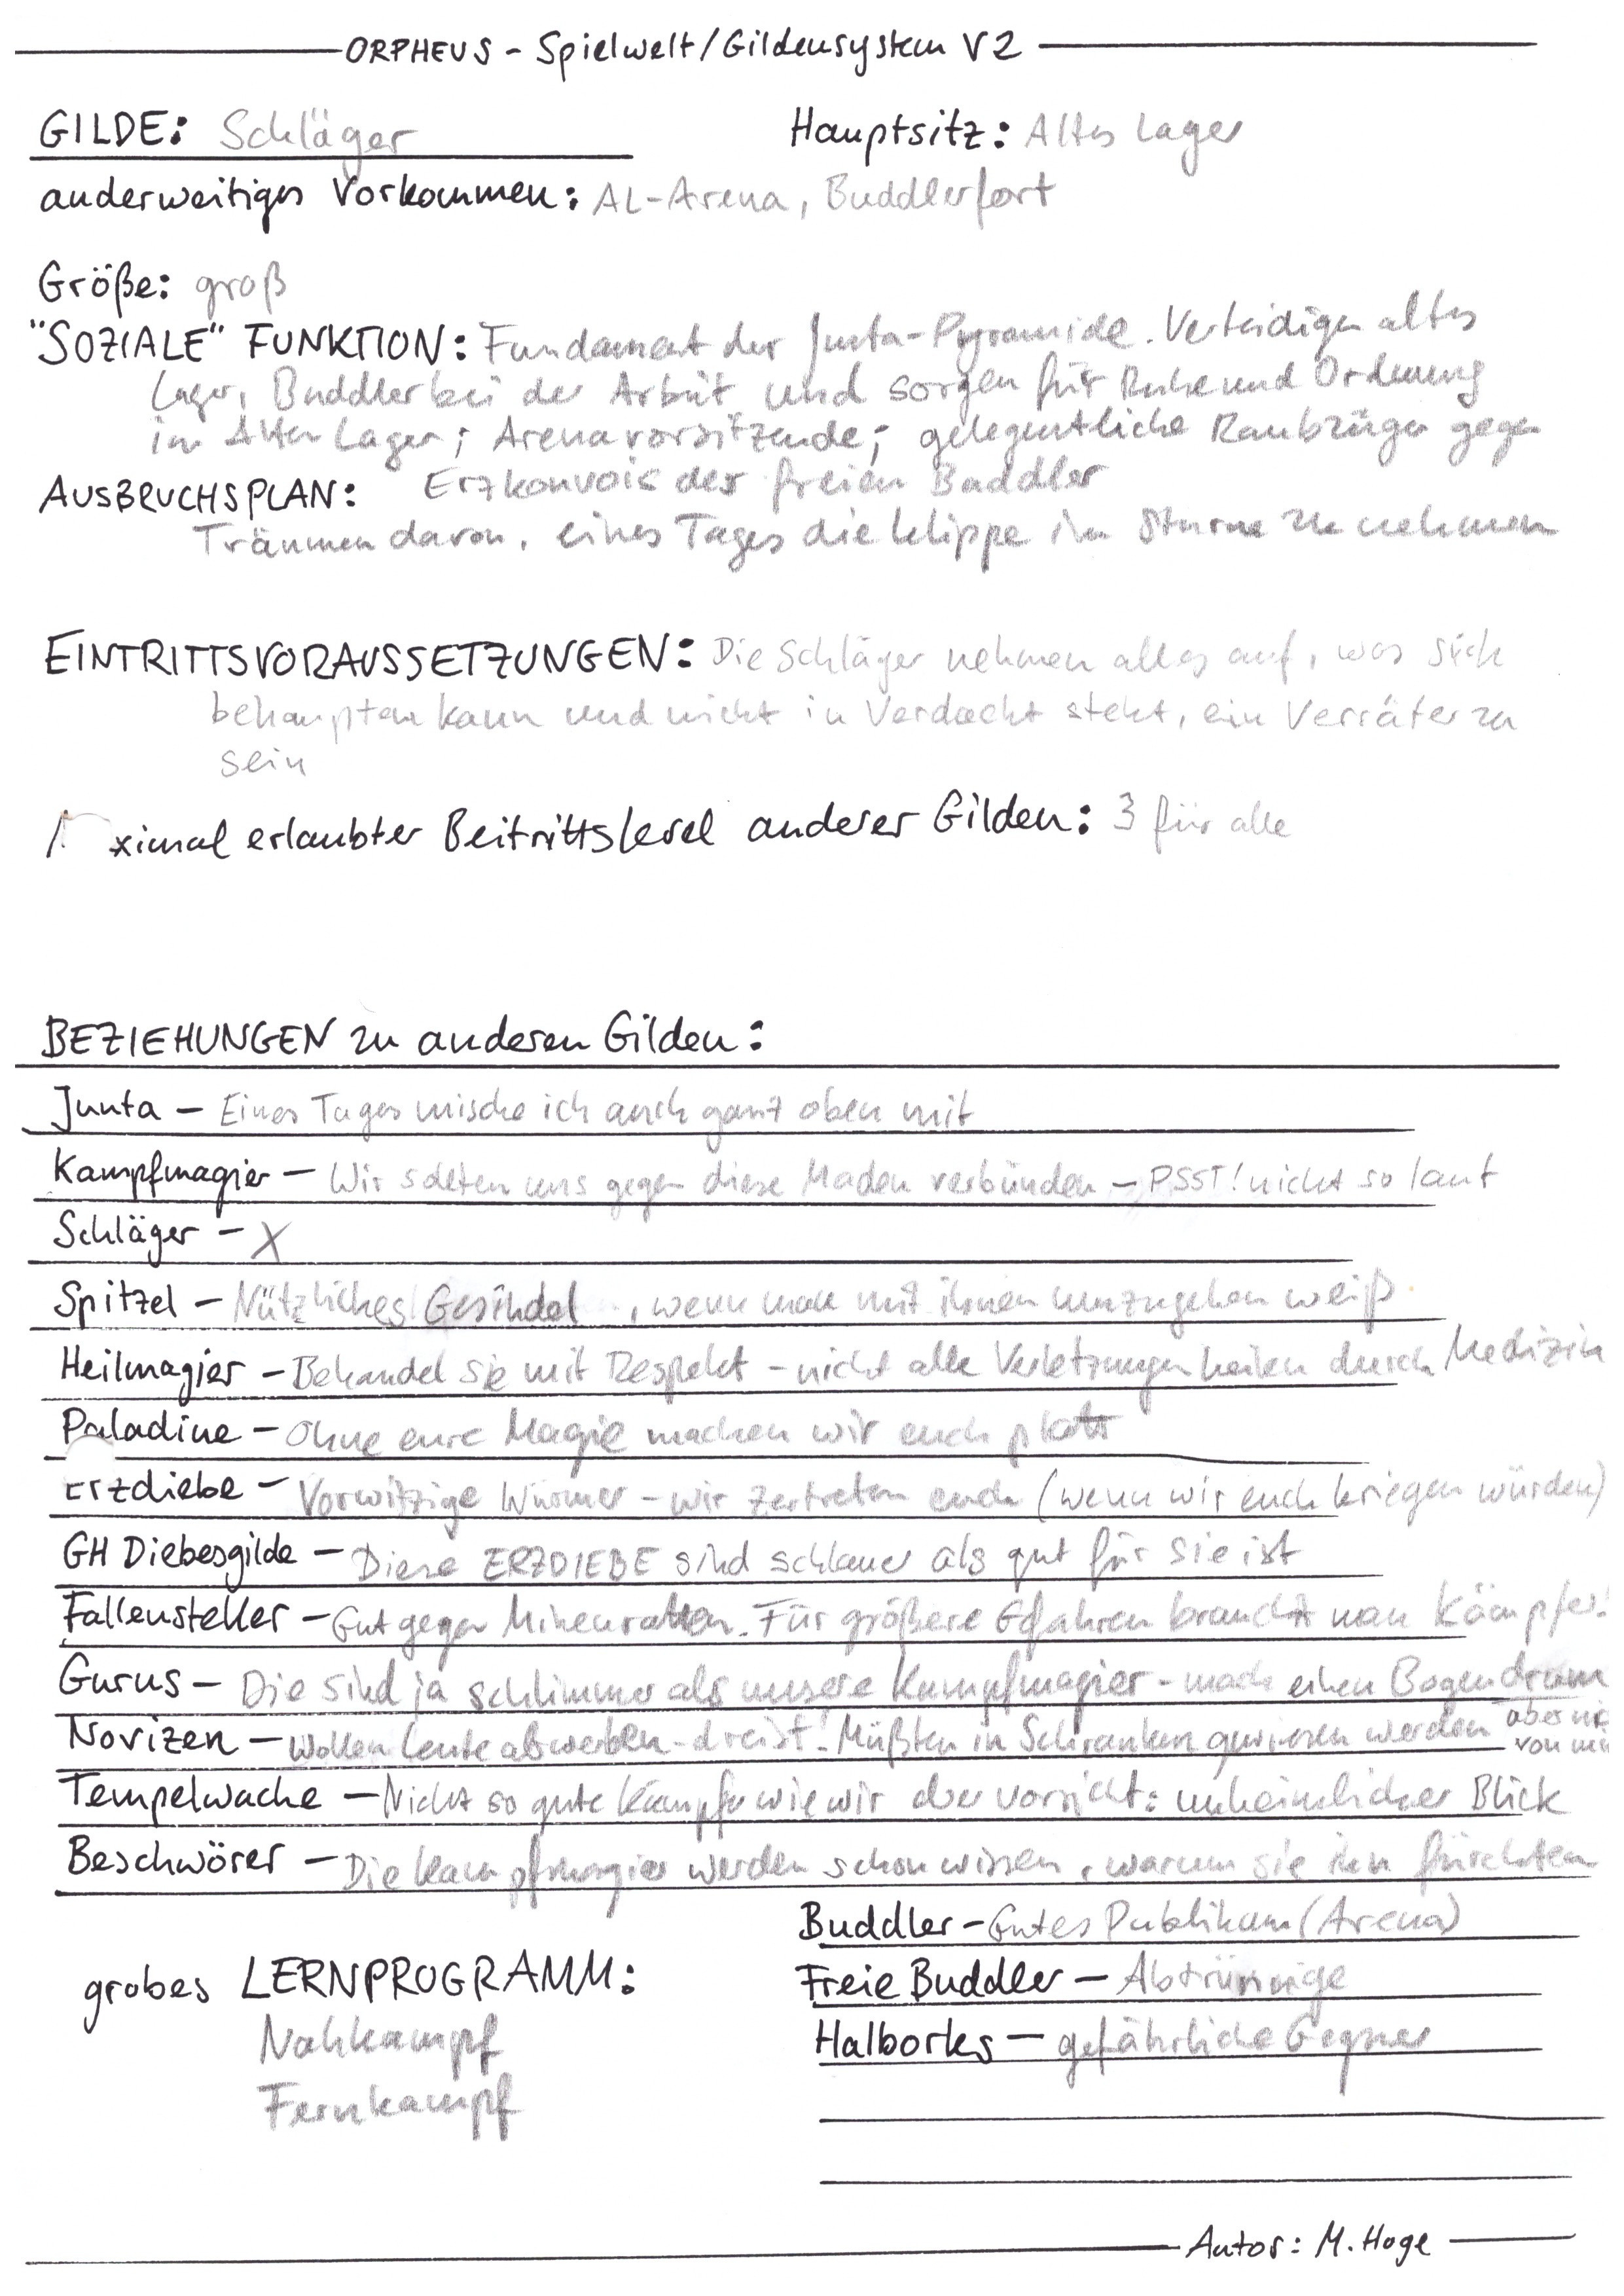 ORPHEUS - Spielwelt/Gildensystem V2
GILDE: Schläger
Hauptsitz: Altes Lager
anderweitiges Vorkommen: AL-Arena, Buddlerfort
Größe: groß
"SOZIALE" FUNKTION: Fundament der Junta-Pyramide. Verteidigen altes
Lager, Buddler bei der Arbeit und sorgen für Ruhe und Ordnung
im Alten Lager; Arenavorsitzende; gelegentliche Raubzüge gegen
Erzkonvois der freien Buddler
AUSBRUCHSPLAN:
Träumen davon, eines Tages die Klippe im Sturm zu nehmen
EINTRITTSVORAUSSETZUNGEN: Die Schläger nehmen alles auf, was sich
behaupten kann und nicht in Verdacht steht, ein Verräter zu
sein
ximal erlaubter Beitrittslevel anderer Gilden: 3 für alle
BEZIEHUNGEN zu anderen Gilden:
Junta - Eines Tages mische ich auch ganz oben mit
Kampfmagier - Wir sollten uns gegen diese Maden verbünden - PSST! nicht so laut
Schläger - X
Spitzel - Nützliches Gesindel, wenn man mit ihnen umzugehen weiß
Heilmagier - Behandel sie mit Respekt - nicht alle Verletzungen heilen durch Medizin
Paladine - Ohne eure Magie machen wir euch platt
Erzdiebe - Vorwitzige Würmer - wir zertreten euch (wenn wir euch kriegen würden)
GH Diebesgilde - Diese ERZDIEBE sind schlauer als gut für sie ist
Fallensteller - Gut gegen Minenratten. Für größere Gefahren braucht man Kämpfer!
Gurus - Die sind ja schlimmer als unsere Kampfmagier - mach einen Bogen drum
Novizen - Wollen Leute abwerben - dreist! Müßten in Schranken gewiesen werden aber
von
Tempelwache - Nicht so gute Kämpfer wie wir aber Vorsicht: unheimlicher Blick
Beschwörer - Die Kampfmagier werden schon wissen, warum sie ihn fürchten
Buddler - Gutes Publikum (Arena)
Freie Buddler - Abtrünnige
Halborks - gefährliche Gegner
grobes LERNPROGRAMM:
Nahkampf
Fernkampf
Autor: M. Hoge